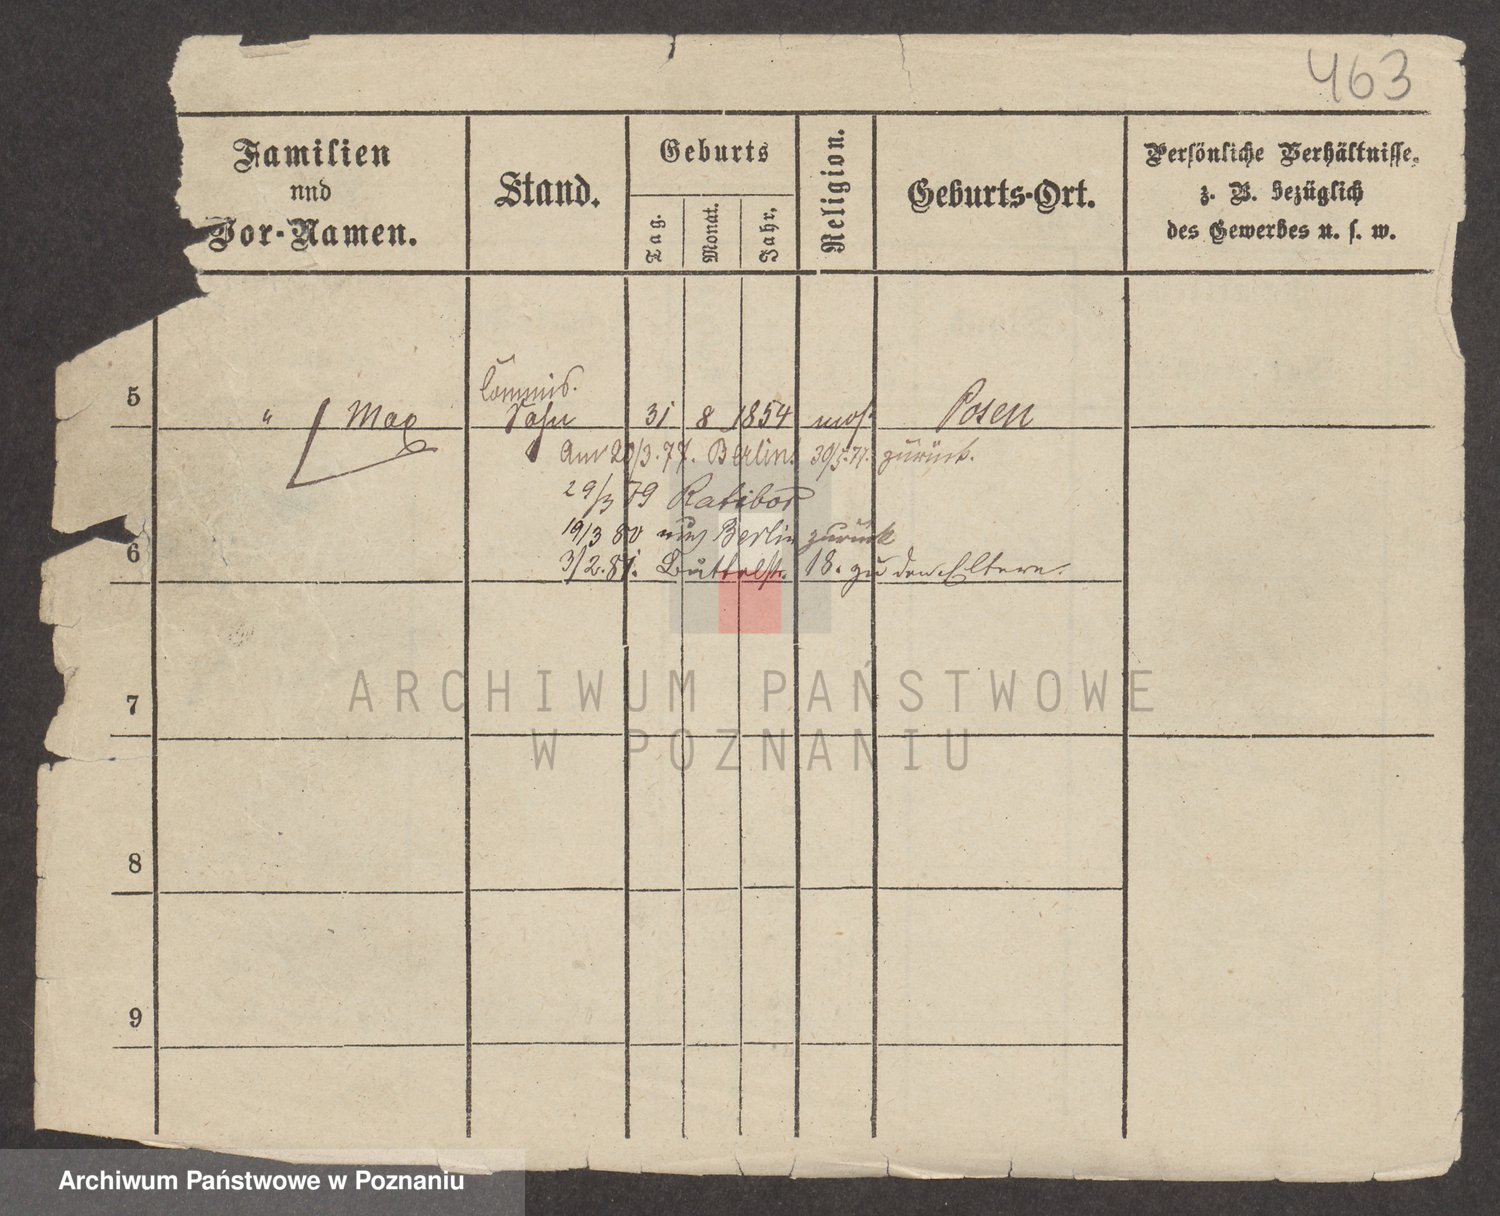 463
Familien
und
Vor-Namen.
Stand.
Geburts
Tag.
Monat.
Jahr.
Religion.
Geburts-Ort.
Persönliche Verhältnisse,
z. B. bezüglich
des Gewerbes u. s. w.
Commis.
5 " Max Sohn 31 8 1854 mos. Posen
Am 20/3. 77. Berlin. 30/5. 77. zurück.
29/3 79 Ratibor
19/3 80 aus Berlin zurück
6
3/2. 81. Büttelstr. 18. zu den Eltern.
ARCHIWUM PAŃSTWOWE
7
W POZNANIU
8
9
Archiwum Państwowe w Poznaniu